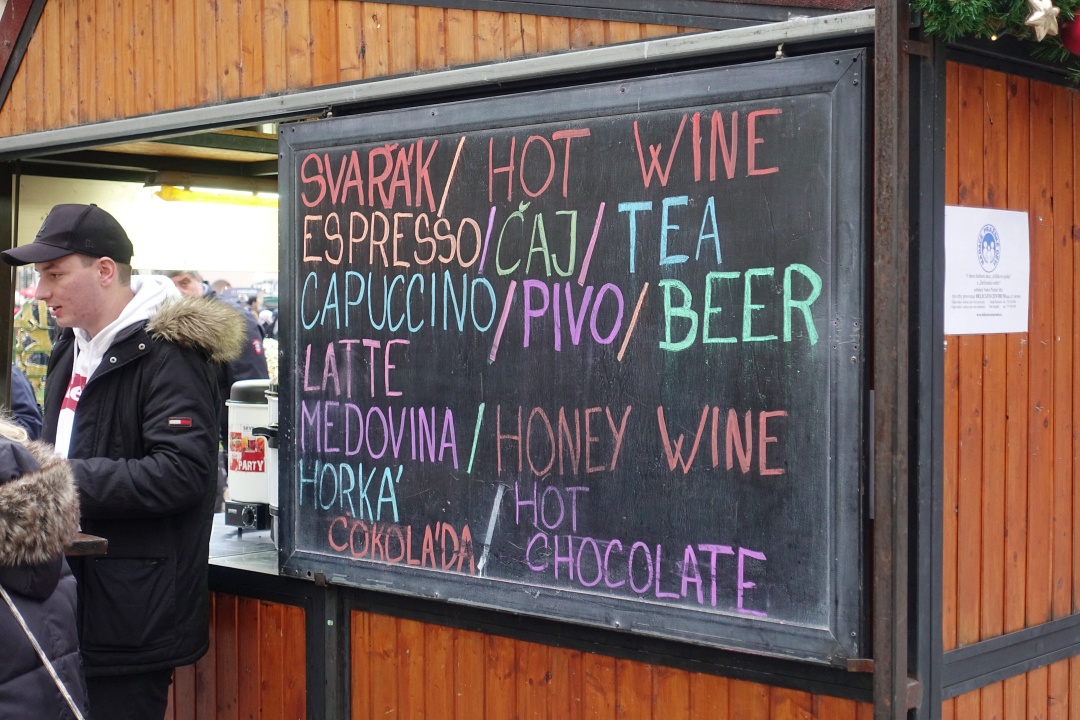 SVAŘÁK / HOT WINE
ESPRESSO / ČAJ / TEA
CAPUCCINO / PIVO / BEER
LATTE
MEDOVINA / HONEY WINE
HORKÁ / HOT
COKOLÁDA / CHOCOLATE
PARTY